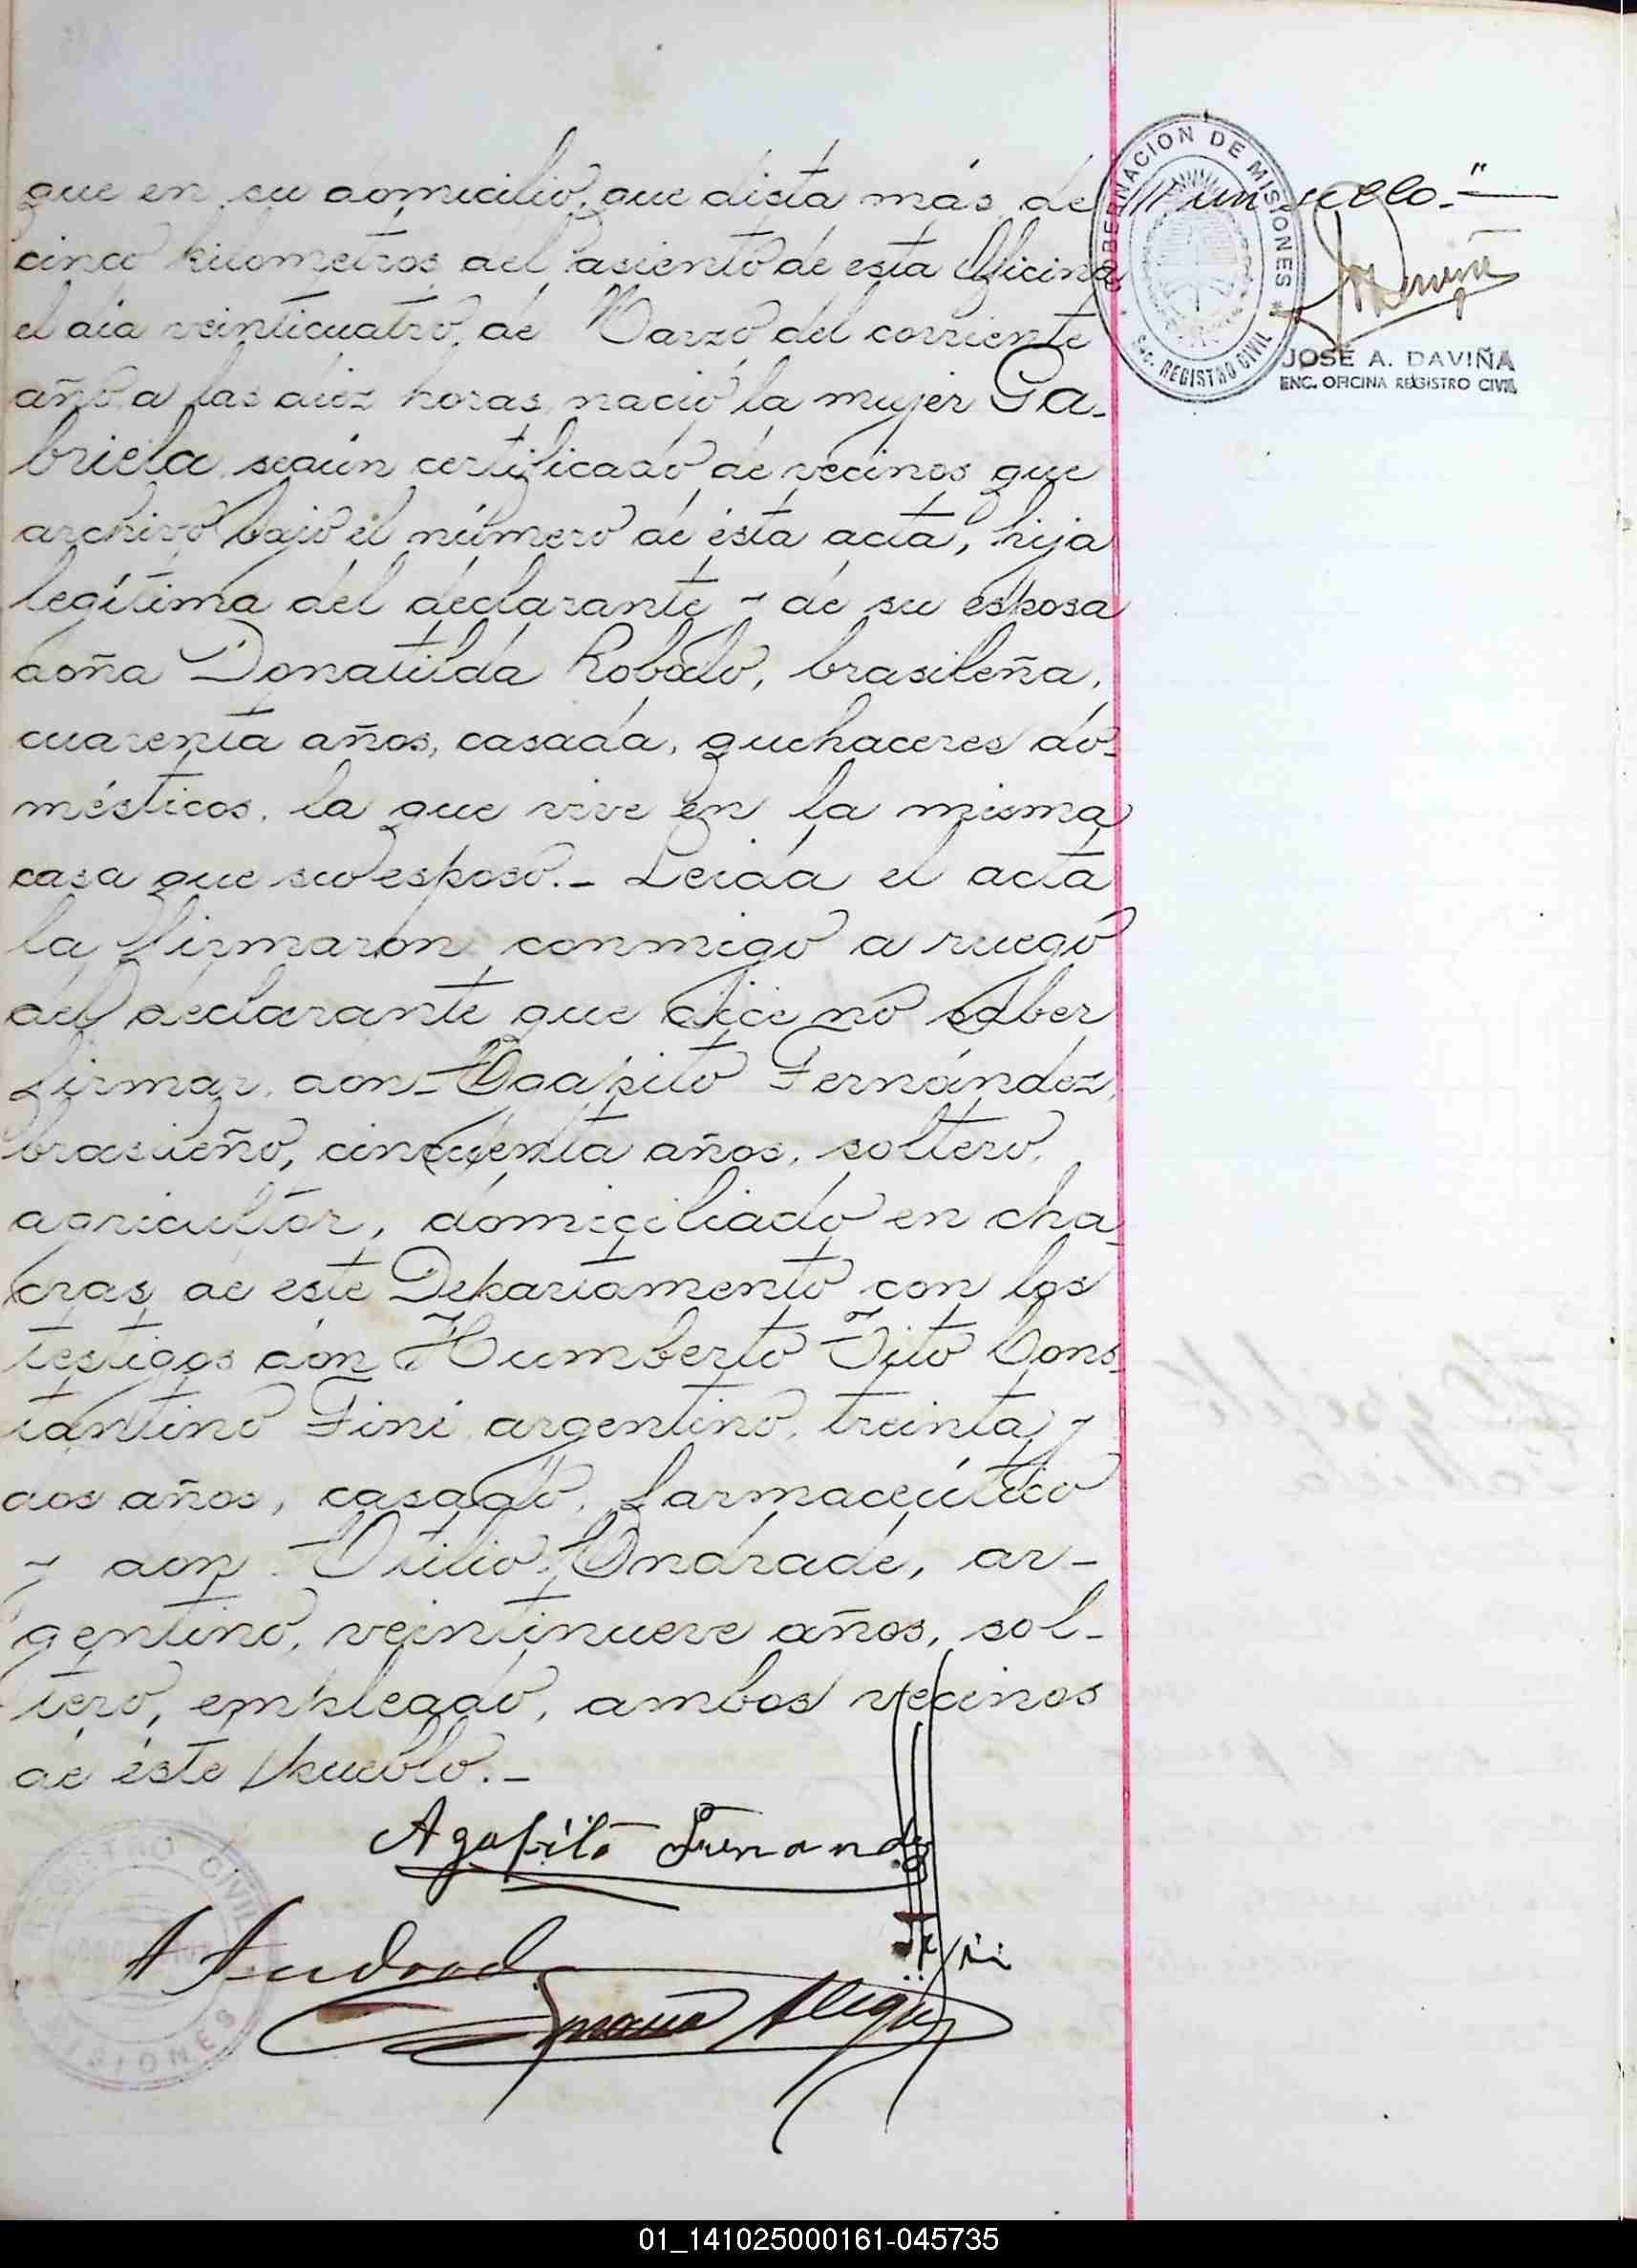 que en su domicilio, que dista más de
cinco kilometros del asiento de esta Oficina
el dia veinticuatro, de Marzo del corriente
año a las diez horas, nació la mujer Ga-
briela según certificado de vecinos que
archivo bajo el número de ésta acta, hija
legítima del declarante y de su esposa
doña Donatilda Robalo, brasileña,
cuarenta años, casada, quehaceres do-
mésticos, la que vive en la misma
casa que su esposo.- Leida el acta
la firmaron conmigo a ruego
del declarante que dice no saber
firmar, don Agapito Fernández,
brasileño, cincuenta años, soltero,
agricultor, domiciliado en cha-
cras de este Departamento con los
testigos don Humberto Tito Cons-
tantino Fini argentino, treinta y
dos años, casado, farmacéutico
y don Otilio Andrade, ar-
gentino, veintinueve años, sol-
tero, empleado, ambos vecinos
de éste pueblo.-
Agapito Fernandez
Fini
Andrade
GOBERNACION DE MISIONES
SEC. REGISTRO CIVIL
un sello.-"
JOSÉ A. DAVIÑA
ENC. OFICINA REGISTRO CIVIL
REGISTRO CIVIL
MISIONES
01_141025000161-045735